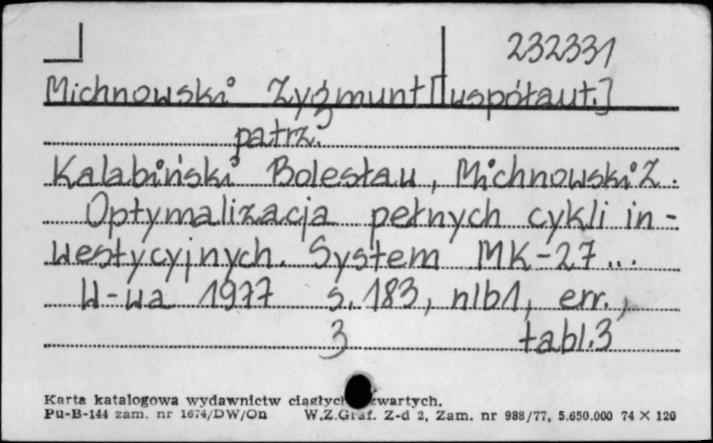 232331
Michnowski Zygmunt [współaut.]
patrz:
Kalabiński Bolesław, Michnowski Z.
Optymalizacja pełnych cykli in-
westycyjnych. System MK-27...
W-wa 1977 s. 183, nlb1, err.,
3 tabl.3
Karta katalogowa wydawnictw ciągłych zwartych.
Pu-B-144 zam. nr 1674/DW/On W.Z.Graf. Z-d 2, Zam. nr 988/77, 5.650.000 74 × 120